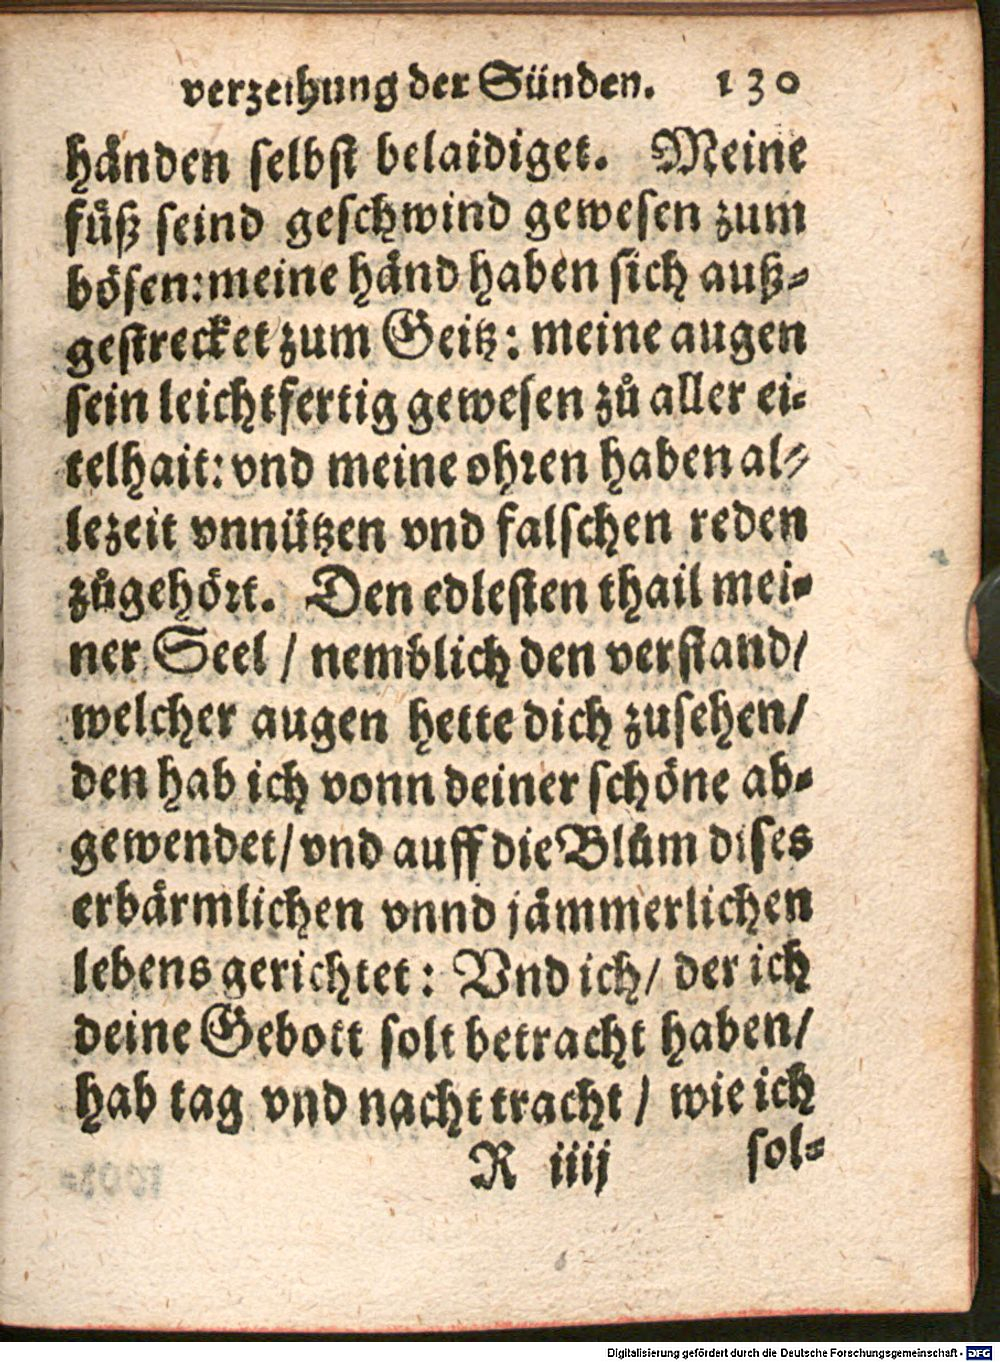 verzeihung der Sünden. 130
händen selbst belaidiget. Meine
füß seind geschwind gewesen zum
bösen: meine händ haben sich auß-
gestrecket zum Geitz: meine augen
sein leichtfertig gewesen zů aller ei-
telhait: vnd meine ohren haben al-
lezeit vnnützen vnd falschen reden
zůgehört. Den edlesten thail mei-
ner Seel / nemblich den verstand /
welcher augen hette dich zusehen /
den hab ich vonn deiner schöne ab-
gewendet / vnd auff die Blům dises
erbärmlichen vnnd jämmerlichen
lebens gerichtet: Vnd ich / der ich
deine Gebott solt betracht haben /
hab tag vnd nacht tracht / wie ich
R iiij sol-
Digitalisierung gefördert durch die Deutsche Forschungsgemeinschaft - DFG